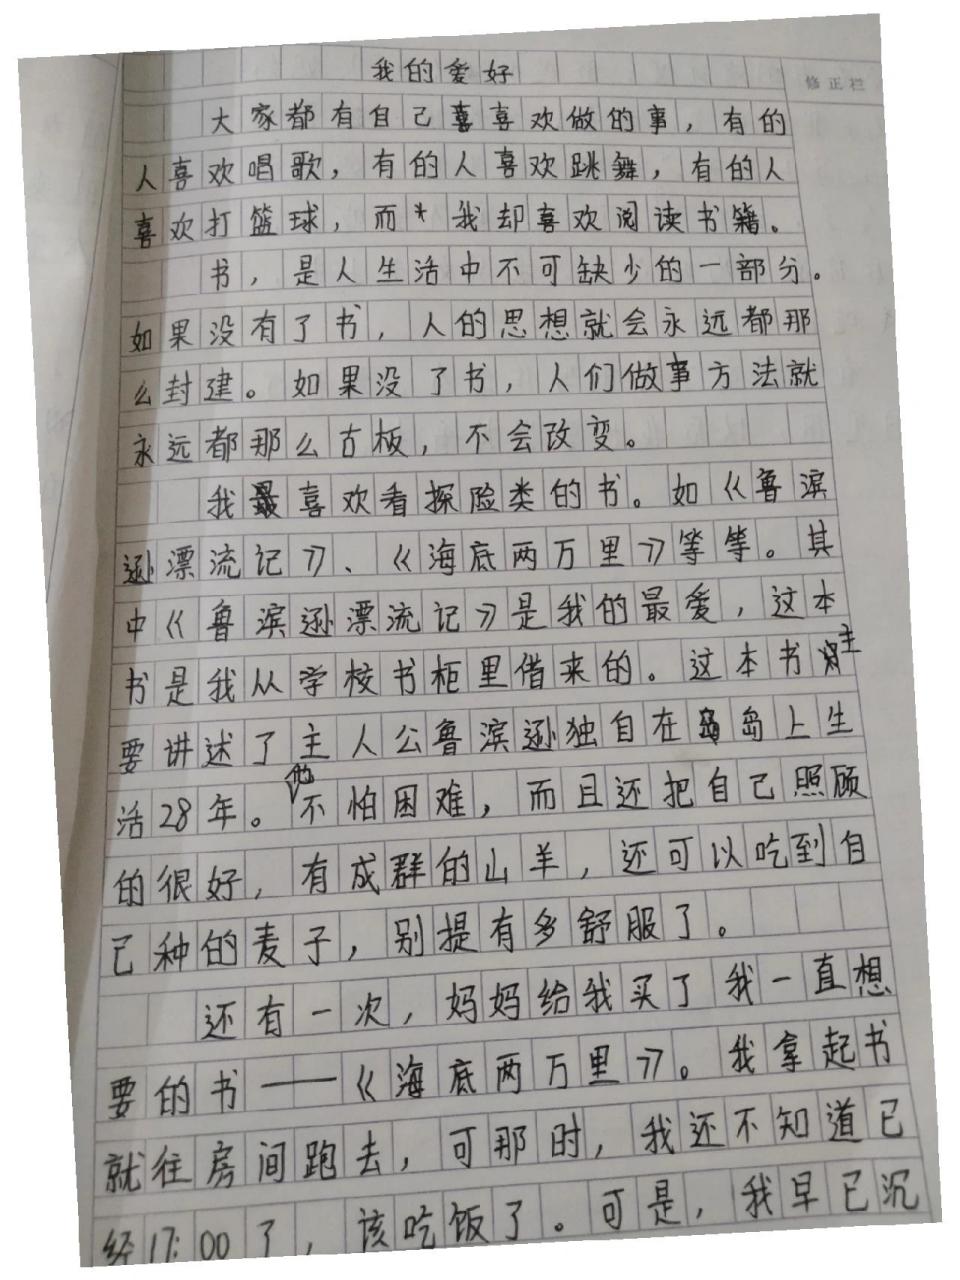 我的爱好
修正栏
大家都有自己喜喜欢做的事，有的
人喜欢唱歌，有的人喜欢跳舞，有的人
喜欢打篮球，而*我却喜欢阅读书籍。
书，是人生活中不可缺少的一部分。
如果没有了书，人的思想就会永远都那
么封建。如果没了书，人们做事方法就
永远都那么古板，不会改变。
我最喜欢看探险类的书。如《鲁滨
逊漂流记》、《海底两万里》等等。其
中《鲁滨逊漂流记》是我的最爱，这本
书是我从学校书柜里借来的。这本书主
要讲述了主人公鲁滨逊独自在岛上生
活28年。他不怕困难，而且还把自己照顾
的很好，有成群的山羊，还可以吃到自
己种的麦子，别提有多舒服了。
还有一次，妈妈给我买了我一直想
要的书——《海底两万里》。我拿起书
就往房间跑去，可那时，我还不知道已
经17:00了，该吃饭了。可是，我早已沉